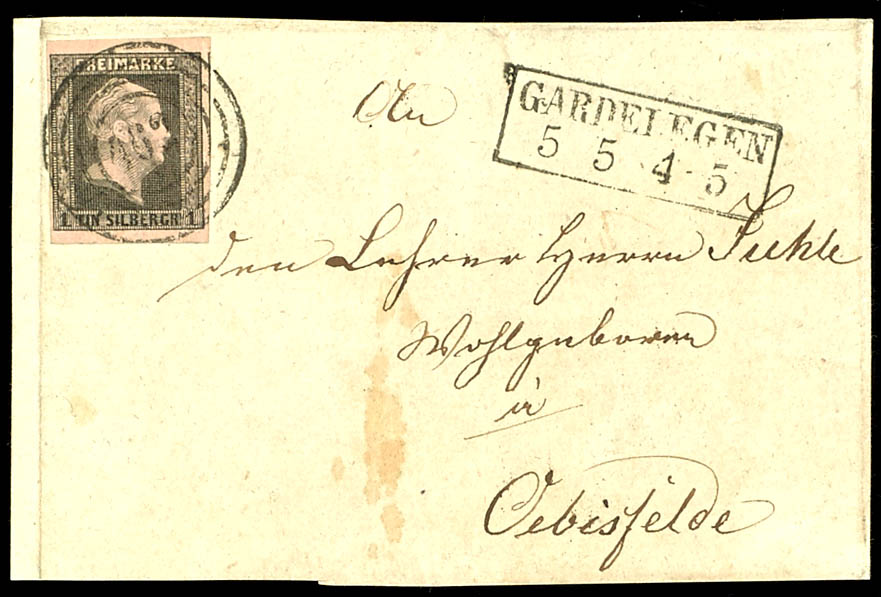 FREIMARKE
1 EIN SILBERGR. 1
GARDELEGEN
5 5 4-5
An
den Lehrer Herrn Fuhle
Wohlgeboren
à
Oebisfelde